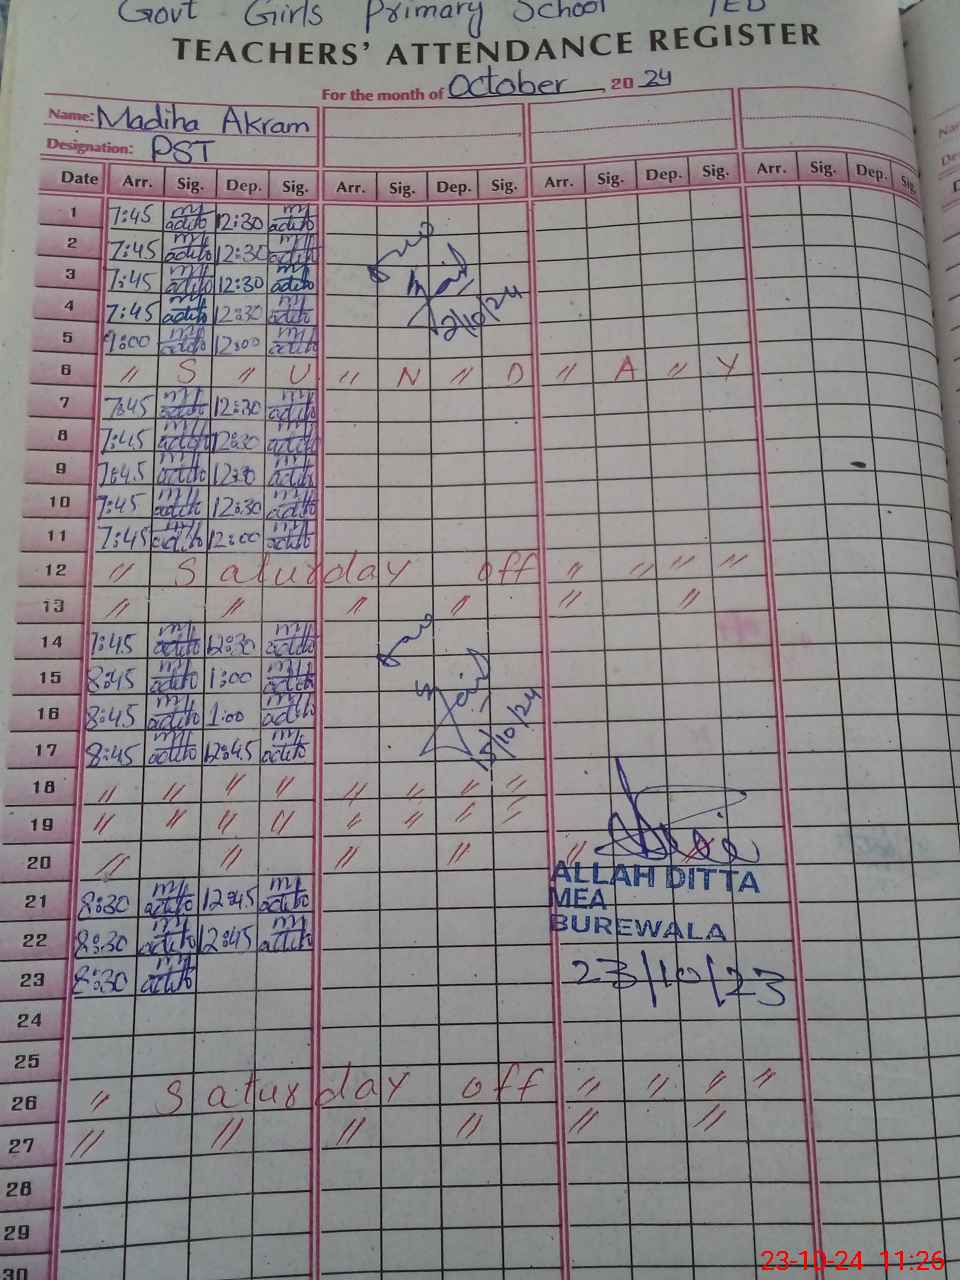 Govt Girls Primary School
TEACHERS' ATTENDANCE REGISTER
For the month of October, 20 24
Name: Madiha Akram
Designation: PST
Date Arr. Sig. Dep. Sig. Arr. Sig. Dep. Sig. Arr. Sig. Dep. Sig. Arr. Sig. Dep. Sig.
1 7:45 12:30
2 7:45 12:30
3 7:45 12:30
4 7:45 12:30
2/10/24
5 9:00 12:00
6 " S " U " N " D " A " Y
7 7:45 12:30
8 7:45 12:30
9 7:45 12:30
10 7:45 12:30
11 7:45 12:00
12 " Saturday off " " " "
13 " " " " " "
14 7:45 12:30
15 8:45 1:00
16 8:45 1:00
17 8:45 12:45
15/10/24
18 " " " " " " " "
19 " " " " " " " "
20 " " " " "
ALLAH DITTA
21 8:30 12:45
MEA
22 8:30 12:45
BUREWALA
23 8:30
23/10/23
24
25
26 " Saturday off " " " "
27 " " " " " "
28
29
30
23-10-24 11:26